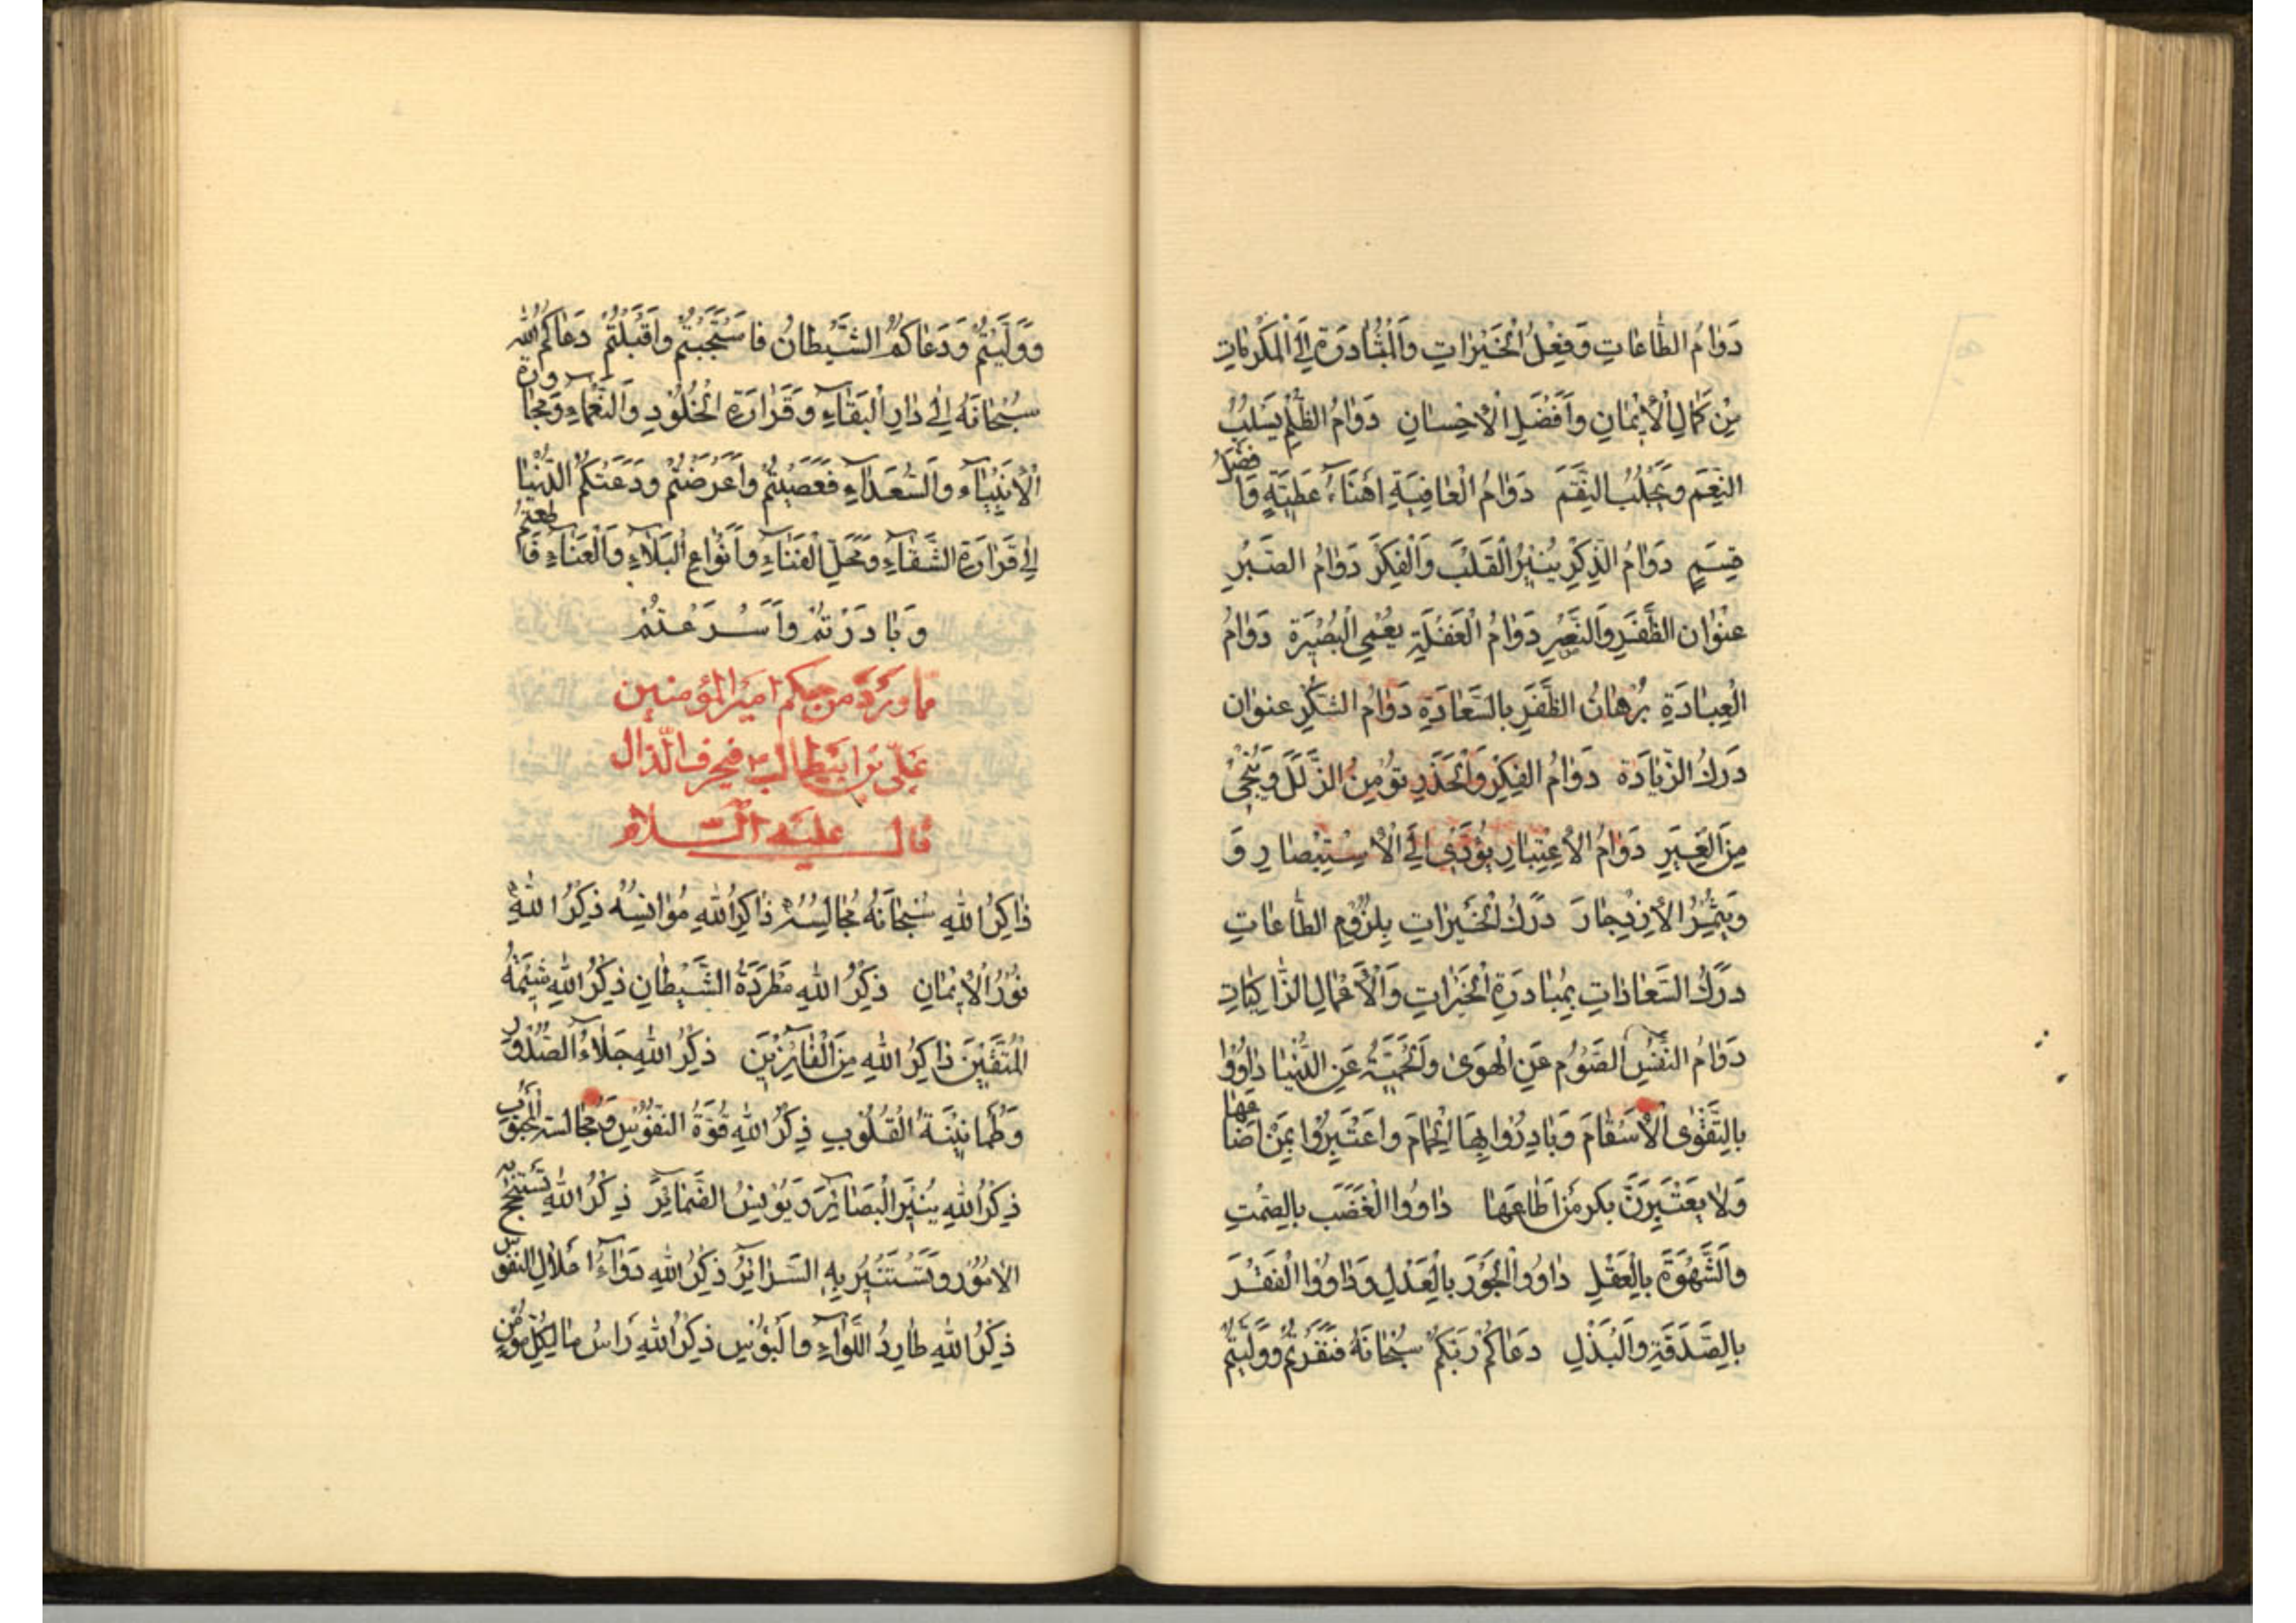 دَوٰامُ الطّٰاعٰاتِ وَفِعْلُ الْخَيْرٰاتِ وَالْمُبٰادَرَةِ اِلَی الْمَكْرُمٰاتِ
مِنْ كَمٰالِ الْاِیْمٰانِ وَاَفْضَلِ الْاِحْسٰانِ دَوٰامُ الظُّلْمِ يَسْلِبُ
النِّعَمَ وَيَجْلِبُ النِّقَمَ دَوٰامُ الْعٰافِيَةِ اَهْنَاءُ عَطِيَّةٍ وَاَفْضَلُ
قِسَمٍ دَوٰامُ الذِّكْرِ يُنِيْرُ الْقَلْبَ وَالْفِكَرَ دَوٰامُ الصَّبْرِ
عُنْوٰان الظَّفَرِ وَالنَّصْرِ دَوٰامُ الْغَفْلَةِ يُعْمِي الْبَصِيْرَةَ دَوٰامُ
الْعِبٰادَةِ بُرْهٰانُ الظَّفَرِ بِالسَّعٰادَةِ دَوٰامُ الشُّكْرِ عنوٰان
دَرَكُ الزِّيٰادَة دَوٰامُ الفِكْرِ وَالْحَذَرِ تُؤْمِنُ الزَّلَلَ وَيُنْجِیْ
مِنَ الْغِيَرِ دَوٰامُ الْاِعْتِبٰارِ يُؤَدّیٰ اِلَی الْاِسْتِبْصٰارِ وَ
وَيُثْمِرُ الْاِزْدِجٰارَ دَرَكُ الْخَيْرٰاتِ بِلُزُوْمِ الطّٰاعٰاتِ
دَرَكُ السَّعٰادٰاتِ بِمُبٰادَرَةِ الْخَيْرٰاتِ وَالْاَعْمٰالِ الزّٰاكِيٰاتِ
دَوٰامُ النَّفْسِ الصَّوْمُ عَنِ الْهَوَىٰ وَالْحِمْيَةُ عَنِ الدُّنْيٰا دٰاوُوْا
بِالتَّقْوٰى الْاَسْقٰامَ وَبٰادِرُوْا بِهَا الْحِمٰامَ وَاعْتَبِرُوْا بِمَنْ اَضٰاعَهٰا
وَلٰا يَعْتَبِرَنَّ بِكُمْ مَنْ اَطٰاعَهٰا دٰاوُوا الْغَضَب بِالصَّمْتِ
وَالشَّهْوَةَ بِالْعَقْلِ دٰاوُوا الْجَوْرَ بِالْعَدْلِ وَدٰاوُوْا الْفَقْرَ
بِالصَّدَقَةِ وَالْبَذْلِ دَعٰاكُمْ رَبُّكُمْ سُبْحٰانَهُ فَنَفَرْتُمْ وَوَلَّيْتُمْ
وَوَلَّيْتُمْ وَدَعٰاكُمُ الشَّيْطٰانُ فَاسْتَجَبْتُمْ وَاَقْبَلْتُمْ دَعٰاكُمُ اللّٰه
سُبْحٰانَهُ اِلٰی دٰارِ الْبَقٰاءِ وَقَرٰارَةِ الْخُلُوْدِ وَالنَّعْمٰاءِ وَمُجٰاوَرَةِ
الْاَنْبِيٰآءِ وَالسُّعَدٰآءِ فَعَصَيْتُمْ وَاَعْرَضْتُمْ وَدَعَتْكُمُ الدُّنْيٰا
اِلٰی قَرٰارَةِ الشَّقٰآءِ وَمَحَلِّ الْفَنٰاءِ وَاَنْوٰاعِ الْبَلٰآءِ وَالْعَنٰآءِ فَاَطَعْتُمْ
وَبٰادَرْتُمْ وَاَسْرَعْتُمْ
مما ورد من حكم امير المؤمنين
علیّ بن ابیطالب ع فی حرف الذال
قال عليه السلام
ذٰاكِرُ اللّٰهِ سُبْحٰانَهُ مُجٰالِسُهُ ذٰاكِرُ اللّٰهِ مُوٰانِسُهُ ذِكْرُ اللّٰهِ
نُوْرُ الْاِیْمٰانِ ذِكْرُ اللّٰهِ مَطْرَدَةُ الشَّيْطٰانِ ذِكْرُ اللّٰهِ شِيْمَةُ
الْمُتَّقِيْنَ ذٰاكِرُ اللّٰهِ مِنَ الْفٰائِزِيْنَ ذِكْرُ اللّٰهِ جَلٰاءُ الصُّدُوْرِ
وَطُمَانِيْنَةُ الْقُلُوْبِ ذِكْرُ اللّٰهِ قُوَّةُ النُّفُوْسِ وَمُجٰالَسَةُ الْمَحْبُوْبِ
ذِكْرُ اللّٰهِ يُنِيْرُ الْبَصٰائِرَ وَيُوْنِسُ الضَّمٰائِرَ ذِكْرُ اللّٰهِ تُسْتَنْجَحُ بِهِ
الْاُمُوْرُ وَتَسْتَنِيْرُ بِهِ السَّرٰائِرُ ذِكْرُ اللّٰهِ دَوٰآءُ اعْلٰالِ النُّفُوْسِ
ذِكْرُ اللّٰهِ طٰارِدُ اللَّأْوٰاءِ وَالْبُؤْسِ ذِكْرُ اللّٰهِ رَاْسُ مٰالِ كُلِّ مُؤْمِنٍ